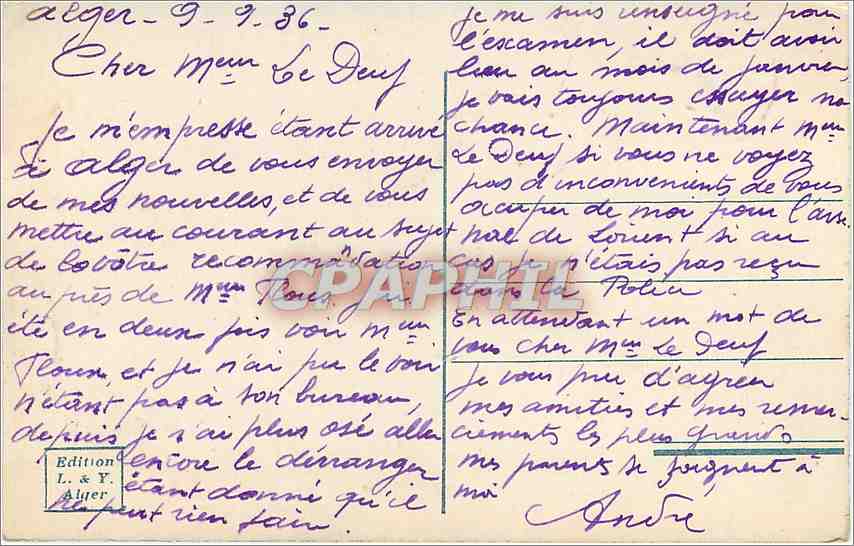 Alger - 9 - 9 - 36 -
Cher Meur Le Deuf
Je m'empresse étant arrivé
à Alger de vous envoyer
de mes nouvelles, et de vous
mettre au courant au sujet
de la vôtre recommandation
auprès de Meur
été en deux fois voir Meur
et je n'ai pu le voir
n'étant pas à son bureau,
depuis je n'ai plus osé aller
encore le dérranger
étant donné qu'il
ne peut rien faire.
Edition
L. & Y.
Alger
je me suis renseigné pour
l'examen, il doit avoir
lieu au mois de janvier,
je vais toujours essayer ma
chance. Maintenant Meur
Le Deuf si vous ne voyez
pas d'inconvenients de vous
occuper de moi pour l'arse-
nal de Lorient si au
cas je n'étais pas reçu
dans la Police
En attendant un mot de
vous cher Meur Le Deuf
je vous prie d'agréer
mes amitiés et mes remer-
ciements les plus grands
mes parents se joignent à
moi
André
CPAPHIL